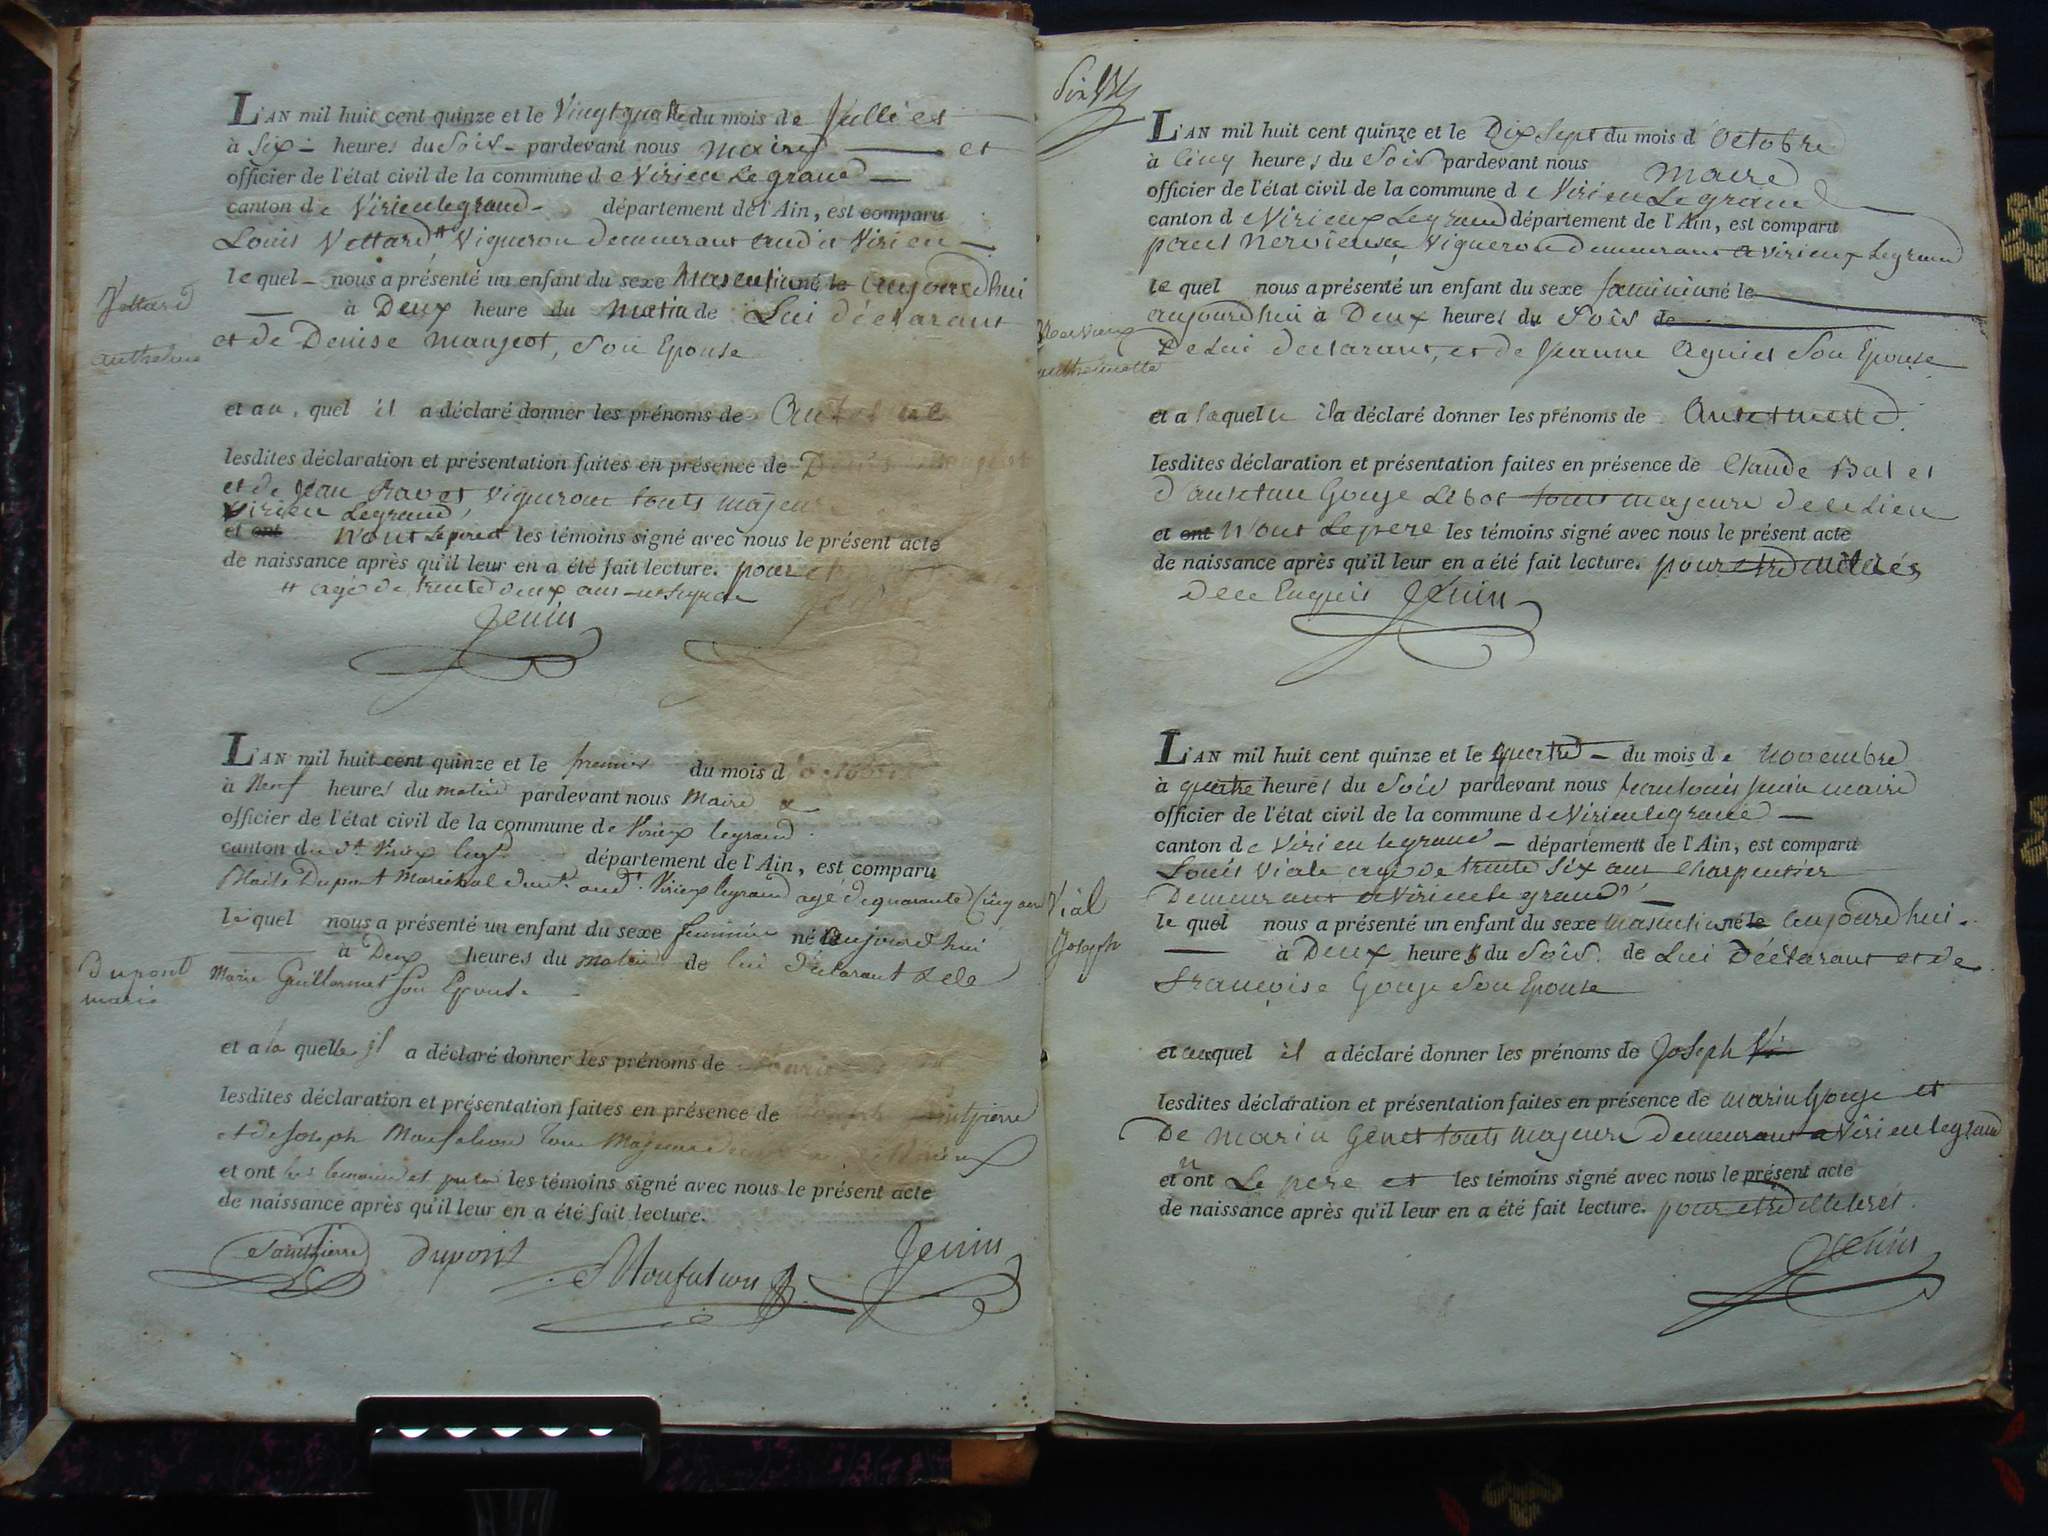 L'AN mil huit cent quinze et le Vingt quatre du mois de Julliet
à Six heures du Soir pardevant nous maire et
officier de l'état civil de la commune de Virieu Le grand
canton de Virieu legrand département de l'Ain, est comparu
Louis Vettard Vigneron demeurant audit Virieu
le quel nous a présenté un enfant du sexe Masculin né le aujourdhui
à Deux heure du Matin de Lui déclarant
et de Denise Maujeot, Son Epouse
Vettard
Anthelme
et au quel il a déclaré donner les prénoms de
lesdites déclaration et présentation faites en présence de Denis
et de Jean Ravet Vigneron touts majeur
Virieu Legrand
et ont N'ont Le pere et les témoins signé avec nous le présent acte
de naissance après qu'il leur en a été fait lecture. pour
# agé de trente deux ans
Jenin
L'AN mil huit cent quinze et le premier du mois d'octobre
à Neuf heures du matin pardevant nous Maire &
officier de l'état civil de la commune de Virieux legrand
canton du dt. Virieux legd. département de l'Ain, est comparu
Dupont Maréchal demt. audt. Virieux legrand agé de quarante Cinq ans
le quel nous a présenté un enfant du sexe feminin né le aujourdhui
à Deux heures du matin de lui déclarant & de
Marie Guillermet son Epouse
Dupont
marie
et a la quelle il a déclaré donner les prénoms de Marie
lesdites déclaration et présentation faites en présence de Joseph Saintpierre
et de Joseph Monfalcon tous Majeurs
et ont les temoins et père les témoins signé avec nous le présent acte
de naissance après qu'il leur en a été fait lecture.
Saintpierre Dupont Monfalcon Jenin
L'AN mil huit cent quinze et le Dix Sept du mois d'Octobre
à Cinq heures du Soir pardevant nous Maire
officier de l'état civil de la commune de Virieu Legrand
canton de Virieux Legrand département de l'Ain, est comparu
paul Nervieux Vigneron demeurant a Virieux Legrand
le quel nous a présenté un enfant du sexe faminin né le
aujourdhui à Deux heures du Soir de
De Lui declarant, et de Jeanne Agniet Son Epouse
Nervieux
et a laquelle il a déclaré donner les prénoms de
lesdites déclaration et présentation faites en présence de Claude Bal et
d'anselme Gouje touts majeure de ce Lieu
et ont N'ont Le pere les témoins signé avec nous le présent acte
de naissance après qu'il leur en a été fait lecture. pour etre
De ce Enquis Jenin
L'AN mil huit cent quinze et le quatre du mois de Novembre
à quatre heures du Soir pardevant nous jean louis jenin maire
officier de l'état civil de la commune de Virieu legrand
canton de Virieu legrand département de l'Ain, est comparu
Louis Viale agé de trente Six ans Charpentier
Demeurant a Virieu le grand
le quel nous a présenté un enfant du sexe masculin né le aujourdhui
à Deux heures du Soir de Lui Déclarant et de
Françoise Gouje Son Epouse
Vial
Joseph
et auquel il a déclaré donner les prénoms de Joseph Vi
lesdites déclaration et présentation faites en présence de marin Gouje et
De marin Genet touts majeure demeurant a Virieu legrand
et n'ont Le pere et les témoins signé avec nous le présent acte
de naissance après qu'il leur en a été fait lecture. pour etre illiteret
Jenin